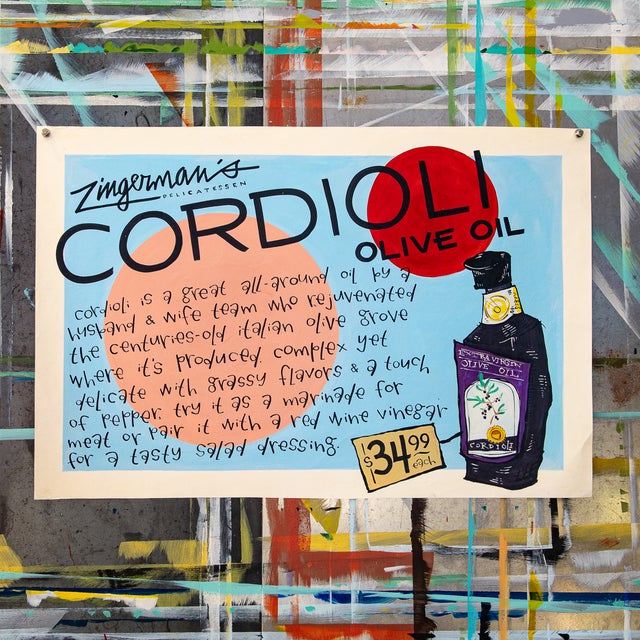 Zingerman's
DELICATESSEN
CORDIOLI
OLIVE OIL
cordioli is a great all-around oil by a
husband & wife team who rejuvenated
the centuries-old italian olive grove
where it's produced. complex yet
delicate with grassy flavors & a touch
of pepper. try it as a marinade for
meat or pair it with a red wine vinegar
for a tasty salad dressing.
$34.99
each
EXTRA VIRGIN
OLIVE OIL
CORDIOLI